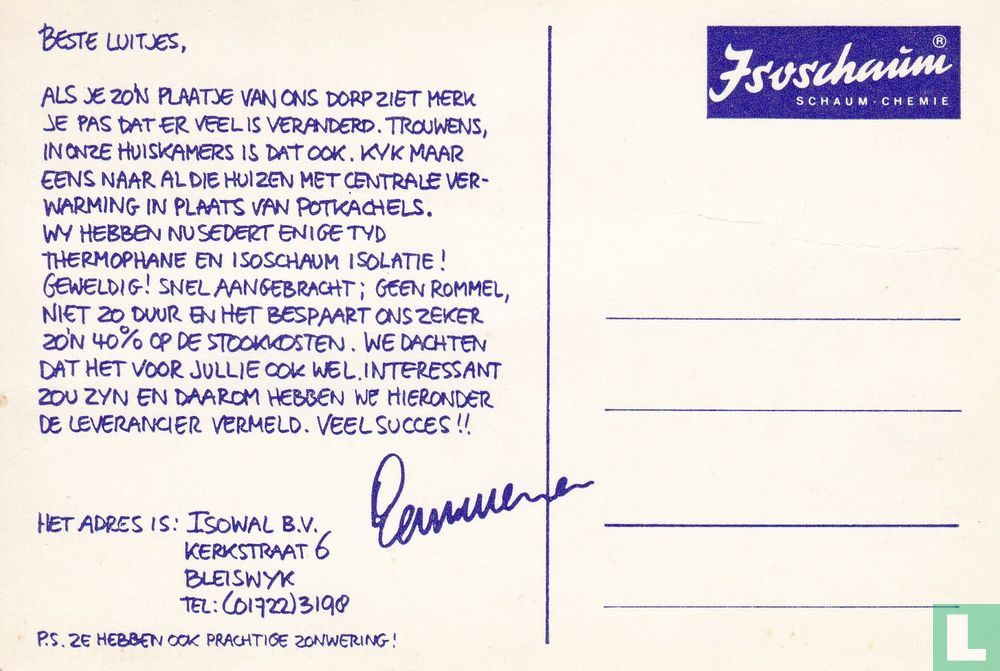 BESTE LUITJES,
ALS JE ZO'N PLAATJE VAN ONS DORP ZIET MERK
JE PAS DAT ER VEEL IS VERANDERD. TROUWENS,
IN ONZE HUISKAMERS IS DAT OOK. KYK MAAR
EENS NAAR AL DIE HUIZEN MET CENTRALE VER-
WARMING IN PLAATS VAN POTKACHELS.
WY HEBBEN NU SEDERT ENIGE TYD
THERMOPHANE EN ISOSCHAUM ISOLATIE!
GEWELDIG! SNEL AANGEBRACHT; GEEN ROMMEL,
NIET ZO DUUR EN HET BESPAART ONS ZEKER
ZO'N 40% OP DE STOOKKOSTEN. WE DACHTEN
DAT HET VOOR JULLIE OOK WEL INTERESSANT
ZOU ZYN EN DAAROM HEBBEN WE HIERONDER
DE LEVERANCIER VERMELD. VEEL SUCCES!!
HET ADRES IS: ISOWAL B.V.
KERKSTRAAT 6
BLEISWYK
TEL: (01722) 3198
P.S. ZE HEBBEN OOK PRACHTIGE ZONWERING!
Isoschaum ®
SCHAUM-CHEMIE
L